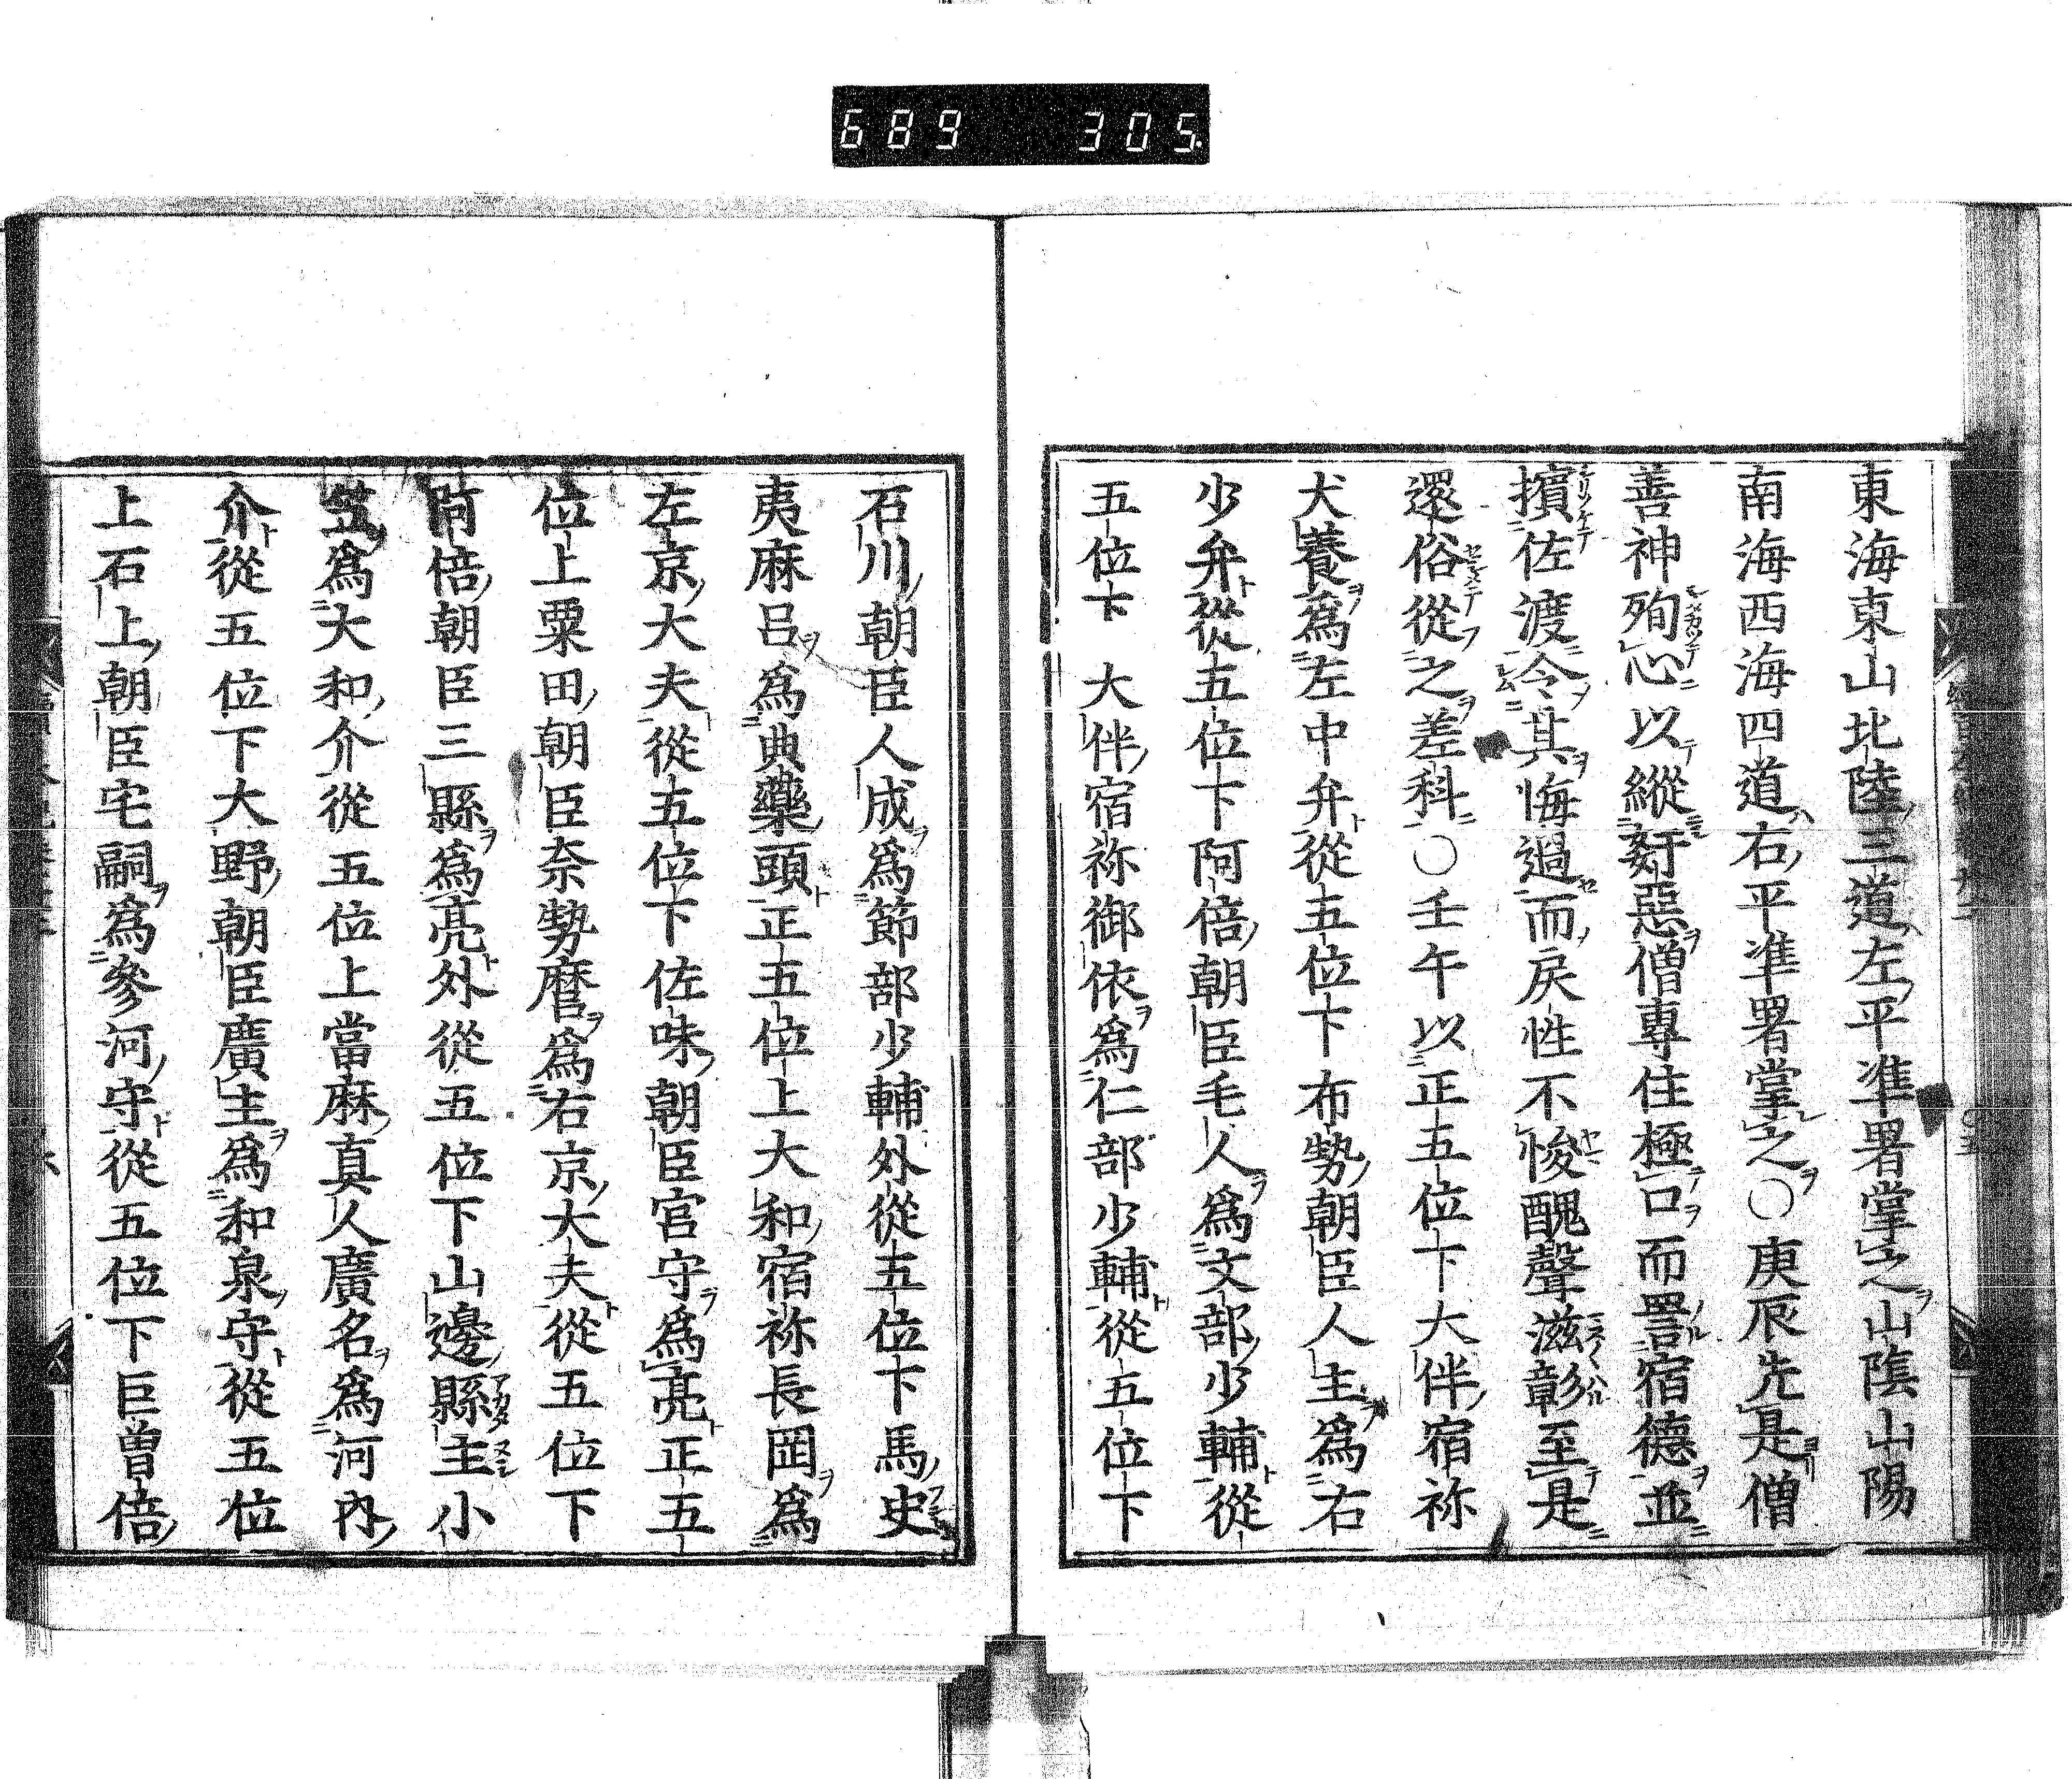 689 305
東海東山北陸三道左平準署掌之山陰山陽
南海西海四道右平準署掌之〇庚辰先是僧
善神殉心以縱姧惡僧專住極口而詈宿德並
擯佐渡令其悔過而戻性不悛醜聲滋彰至是
還俗從之差科〇壬午以正五位下大伴宿祢
犬養爲左中弁從五位下布勢朝臣人主爲右
少弁從五位下阿倍朝臣毛人爲文部少輔從
五位下大伴宿祢御依爲仁部少輔從五位下
石川朝臣人成爲節部少輔外從五位下馬史
夷麻呂爲典藥頭正五位上大和宿祢長罡爲
左京大夫從五位下佐味朝臣宮守爲亮正五
位上粟田朝臣奈勢麿爲右京大夫從五位下
阿倍朝臣三縣爲亮外從五位下山邊縣主小
笠爲大和介從五位上當麻真人廣名爲河內
介從五位下大野朝臣廣主爲和泉守從五位
上石上朝臣宅嗣爲參河守從五位下巨曽倍